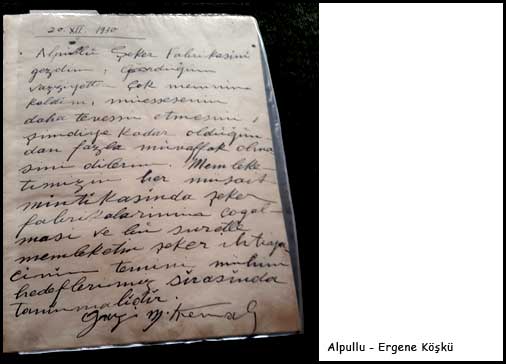 20. XII. 1930
Alpullu Şeker Fabrikasini
gezdim, gördüğüm
vaziyetten çok memnun
kaldım, müessesenin
daha tevessü etmesini,
şimdiye kadar olduğun
dan fazla muvaffak olma
sını dilerim. Memleke
timizin her müsait
mıntıkasında şeker
fabrikalarının çoğal
ması ve bu suretle
memleketin şeker ihtiya
cinin temini mühim
hedeflerimiz sırasında
tanınmalıdır.
Gazi M. Kemal
Alpullu - Ergene Köşkü